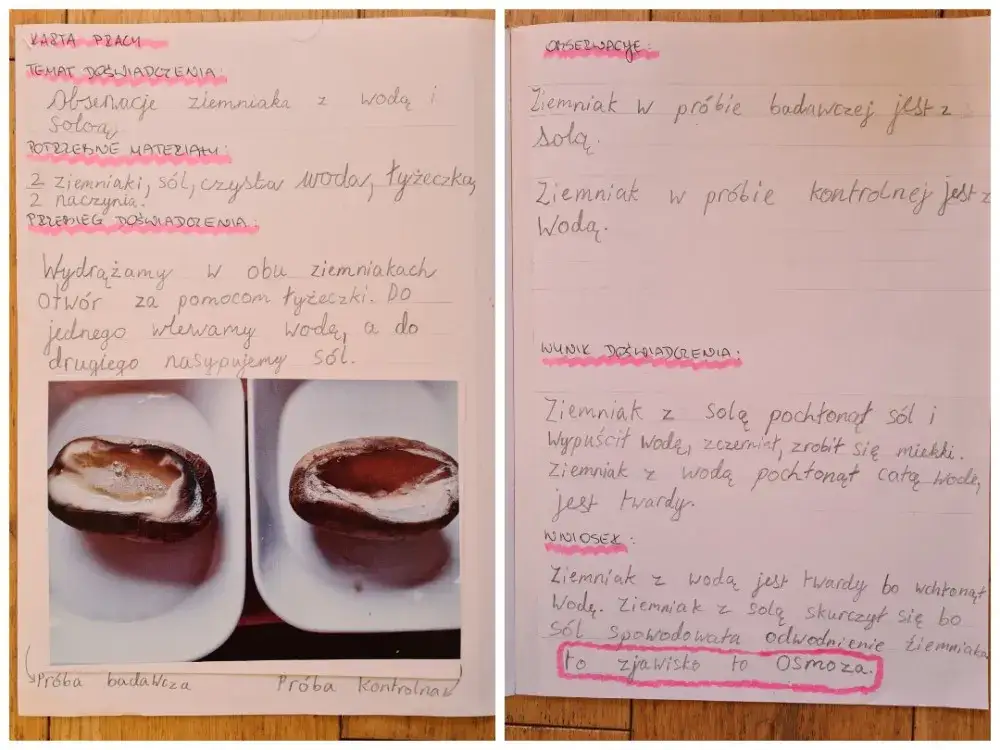 KARTA PRACY
TEMAT DOŚWIADCZENIA:
Obserwacje ziemniaka z wodą i
solą.
POTRZEBNE MATERIAŁY:
2 ziemniaki, sól, czysta woda, łyżeczka,
2 naczynia.
PRZEBIEG DOŚWIADCZENIA:
Wydrążamy w obu ziemniakach
otwór za pomocom łyżeczki. Do
jednego wlewamy wodę, a do
drugiego nasypujemy sól.
Próba badawcza
Próba kontrolna
OBSERWACJE:
Ziemniak w próbie badawczej jest z
solą.
Ziemniak w próbie kontrolnej jest z
wodą.
WYNIK DOŚWIADCZENIA:
Ziemniak z solą pochłonął sól i
wypuścił wodę, zczerniał, zrobił się miękki.
Ziemniak z wodą pochłonął całą wodę,
jest twardy.
WNIOSEK:
Ziemniak z wodą jest twardy bo wchłonął
wodę. Ziemniak z solą skurczył się bo
sól spowodowała odwodnienie ziemniaka
to zjawisko to osmoza.